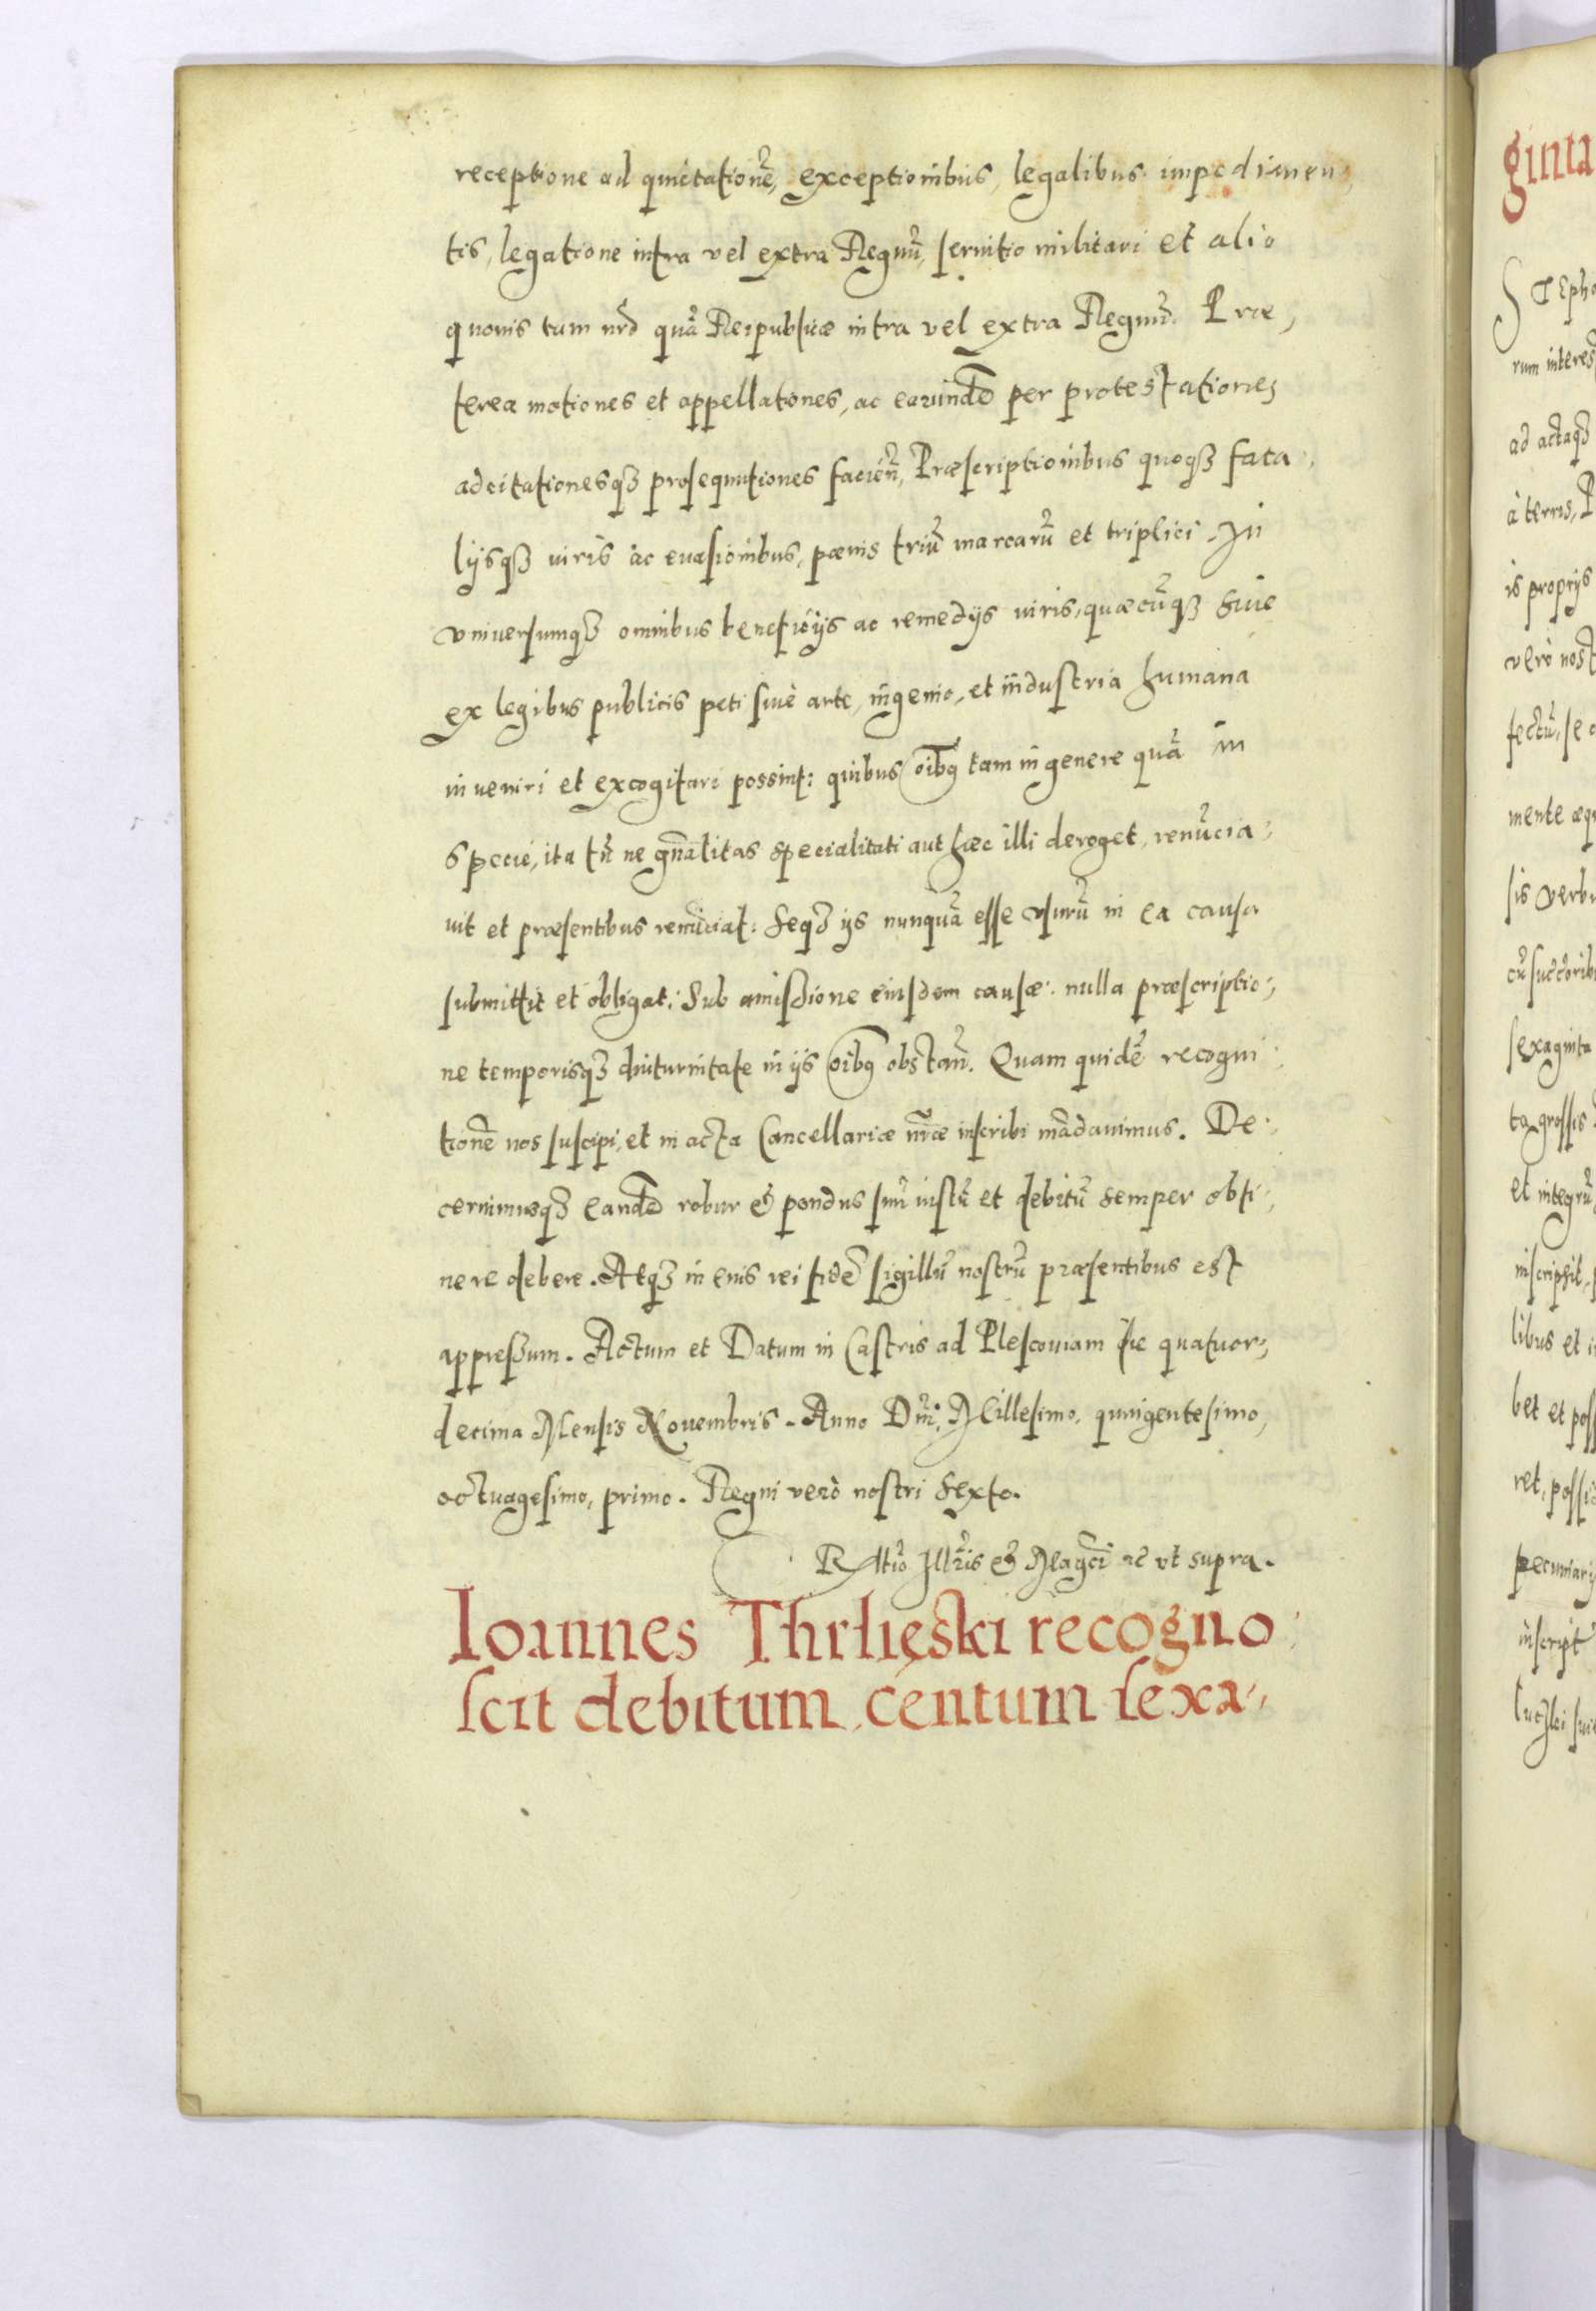 receptione ad quietationẽ, exceptionibus, legalibus impedimen,
tis, legatione intra vel extra Regnũ, seruitio militari et alio
quouis tum nr̃o quã Reipublicæ intra vel extra Regnũ. Præ,
terea motiones et appellationes, ac earundẽ per protestationes
adcitationesqꝫ prosequutiones facieñ, Præscriptionibus quoqꝫ fata,
lijsqꝫ viris ac euasionibus, pænis triũ marcarũ et triplici. In
vniversumqꝫ omnibus beneficijs ac remedijs viris, quæcũqꝫ siue
ex legibus publicis peti siuè arte, ingenio, et industria humana
inueniri et excogitari possint: quibus oĩbꝰ tam in genere quã in
specie, ita tñ ne gñalitas specialitati aut hæc illi deroget, renũcia,
uit et præsentibus renũciat: Seqꝫ ijs nunquã esse vsurũ in ea causa
submittit et obligat: Sub amissione eiusdem causæ: nulla præscriptio,
ne temporisqꝫ diuturnitate in ijs oĩbꝰ obstañ. Quam quidẽ recogni
tionẽ nos suscipi, et in acta Cancellariæ nr̃æ inscribi mãdauimus. De,
cernimusqꝫ eandẽ robur & pondus suũ iustũ et debitũ semper obti,
nere debere. Atqꝫ in euis rei fidẽ sigillũ nostrũ præsentibus est
appressum. Actum et Datum in Castris ad Plescouiam die quatuor,
decima Mensis Nouembris. Anno Dñi: Millesimo, quingentesimo,
octuagesimo, primo. Regni verò nostri Sexto.
Rltio Illr̃is & Magci ac vt supra.
Ioannes Thrlięski recogno
scit debitum, centum sexa,
ginta
Stepha
rum interes
ad actaqꝫ
à terris, P
is proprijs
verò nost
fectũ, se
mente æq
sis verbu
cũ succorib
sexaginta
ta grossis
et integrũ
inscripsit
libus et i
bet et poss
ret, possi
pecuniari
inscript